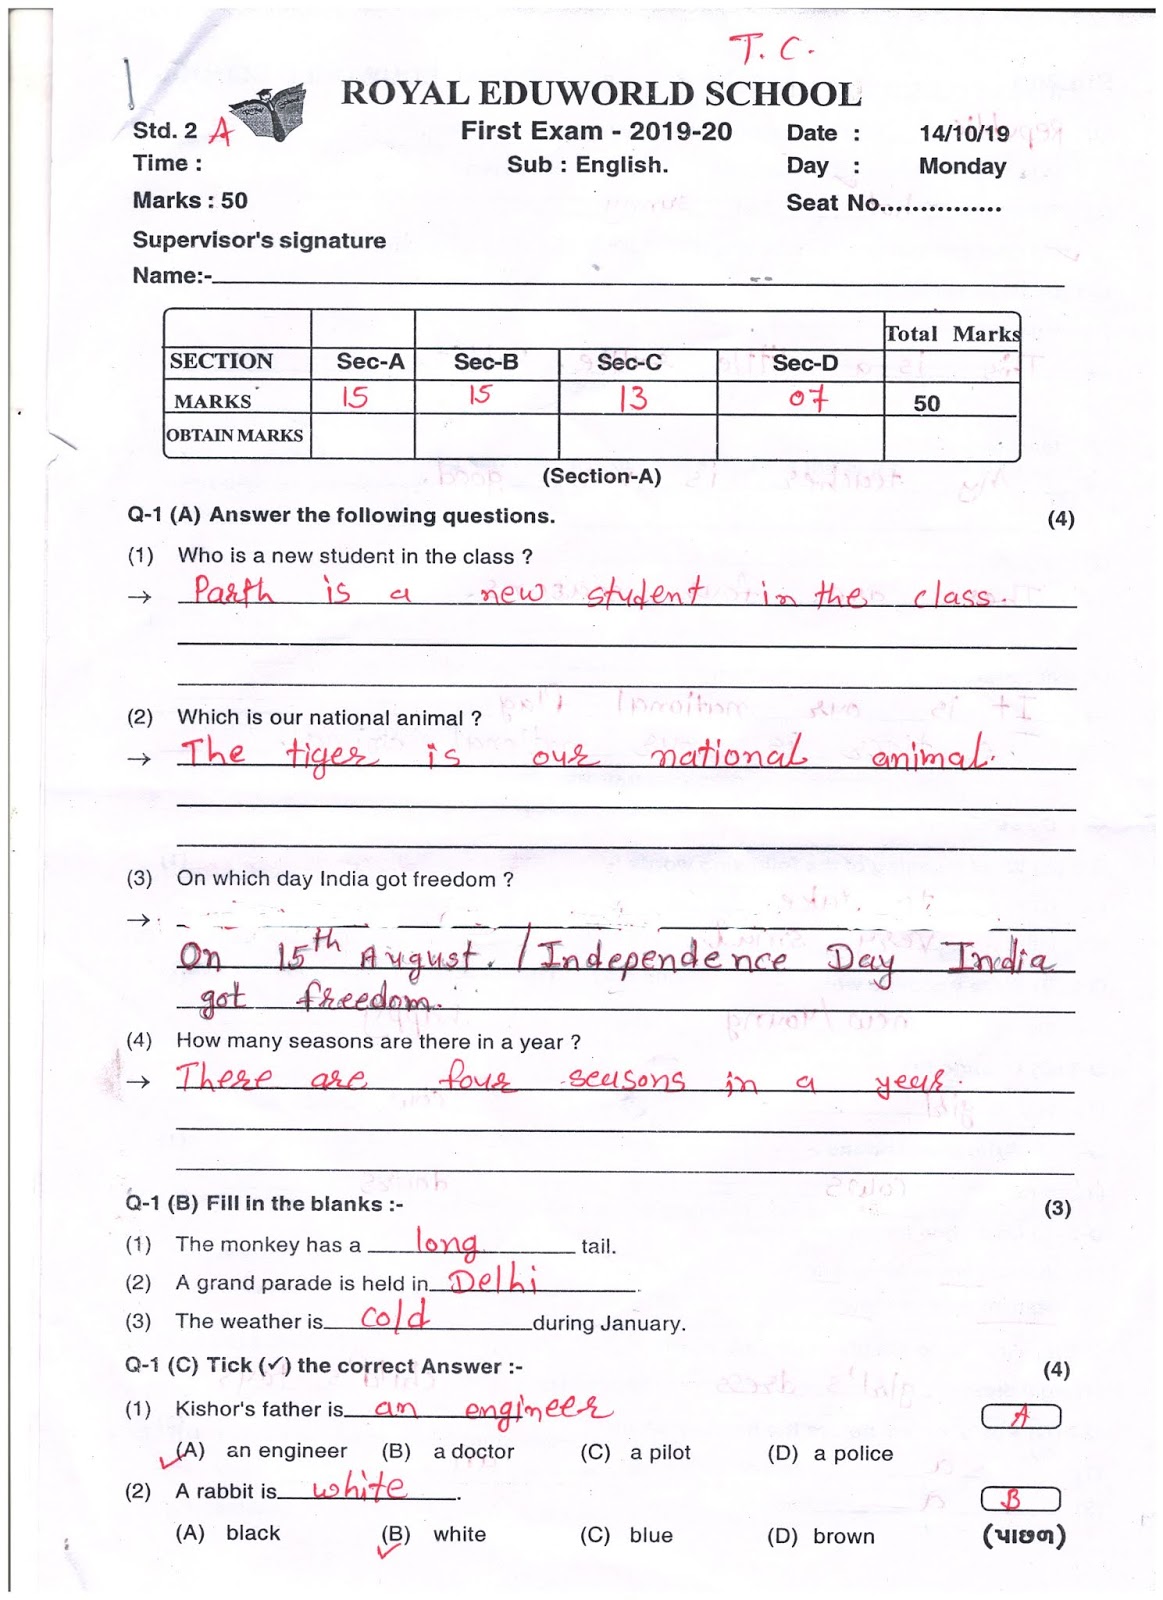 T. C.
ROYAL EDUWORLD SCHOOL
Std. 2 A First Exam - 2019-20 Date : 14/10/19
Time : Sub : English. Day : Monday
Marks : 50 Seat No...............
Supervisor's signature
Name:-
Total Marks
SECTION Sec-A Sec-B Sec-C Sec-D
MARKS 15 15 13 07 50
OBTAIN MARKS
(Section-A)
Q-1 (A) Answer the following questions. (4)
(1) Who is a new student in the class ?
→ Parth is a new student in the class.
(2) Which is our national animal ?
→ The tiger is our national animal.
(3) On which day India got freedom ?
→
On 15th August. / Independence Day India
got freedom.
(4) How many seasons are there in a year ?
→ There are four seasons in a year.
Q-1 (B) Fill in the blanks :- (3)
(1) The monkey has a long tail.
(2) A grand parade is held in Delhi.
(3) The weather is cold during January.
Q-1 (C) Tick (✓) the correct Answer :- (4)
(1) Kishor's father is an engineer A
✓(A) an engineer (B) a doctor (C) a pilot (D) a police
(2) A rabbit is white. B
(A) black (B)✓ white (C) blue (D) brown (પાછળ)